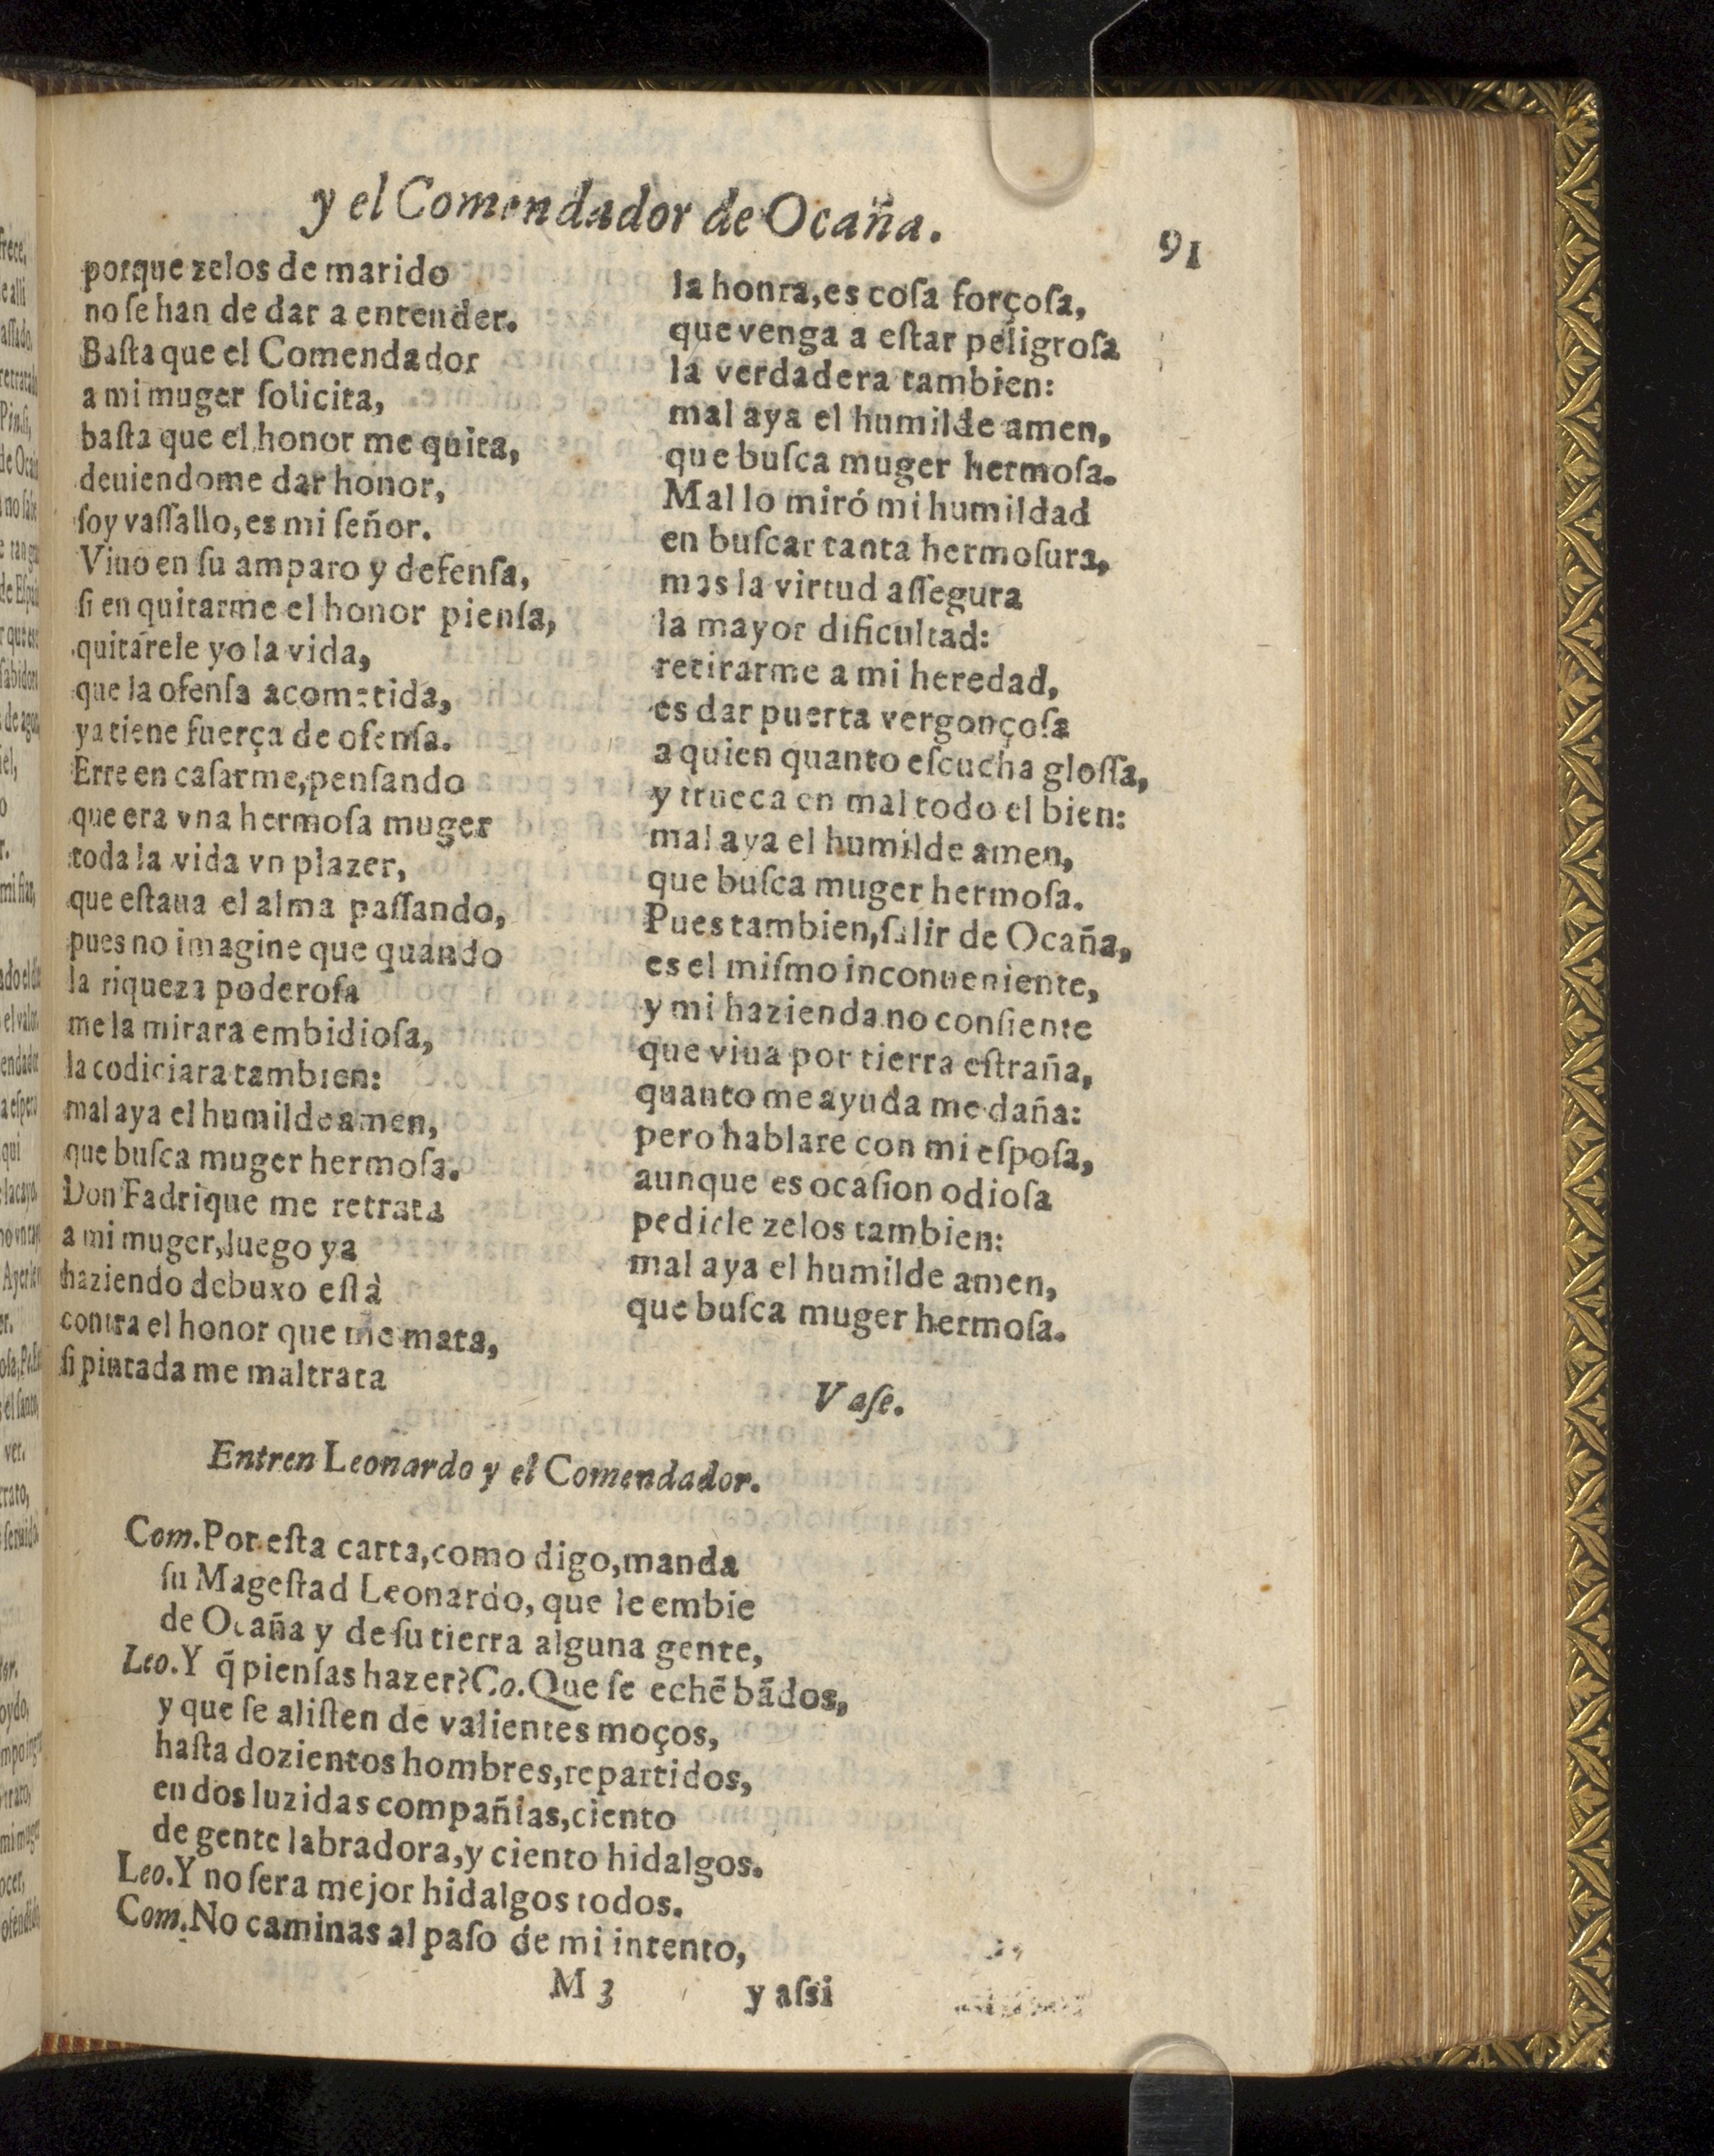 y el Comendador de Ocaña.
91
porque zelos de marido
no ſe han de dar a entender.
Baſta que el Comendador
a mi muger ſolicita,
baſta que el honor me quita,
deuiendome dar honor,
ſoy vaſſallo, es mi ſeñor.
Viuo en ſu amparo y defenſa,
ſi en quitarme el honor pienſa,
quitárele yo la vida,
que la ofenſa acometida,
ya tiene fuerça de ofenſa.
Erre en caſarme, penſando
que era vna hermoſa muger
toda la vida vn plazer,
que eſtaua el alma paſſando,
pues no imagine que quando
la riqueza poderoſa
me la mirara embidioſa,
la codiciara tambien:
mal aya el humilde amen,
que buſca muger hermoſa.
Don Fadrique me retrata
a mi muger, luego ya
haziendo debuxo eſtà
contra el honor que me mata,
ſi pintada me maltrata
la honra, es coſa forçoſa,
que venga a eſtar peligroſa
la verdadera tambien:
mal aya el humilde amen,
que buſca muger hermoſa.
Mal lo miró mi humildad
en buſcar tanta hermoſura,
mas la virtud aſſegura
la mayor dificultad:
retirarme a mi heredad,
es dar puerta vergonçoſa
a quien quanto eſcucha gloſſa,
y trueca en mal todo el bien:
mal aya el humilde amen,
que buſca muger hermoſa.
Pues tambien, ſalir de Ocaña,
es el miſmo inconueniente,
y mi hazienda no conſiente
que viua por tierra eſtraña,
quanto me ayuda me daña:
pero hablare con mi eſpoſa,
aunque es ocaſion odioſa
pedirle zelos tambien:
mal aya el humilde amen,
que buſca muger hermoſa.
Vaſe.
Entren Leonardo y el Comendador.
Com. Por eſta carta, como digo, manda
ſu Mageſtad Leonardo, que le embie
de Ocaña y de ſu tierra alguna gente,
Leo. Y q̃ pienſas hazer? Co. Que ſe echẽ bãdos,
y que ſe aliſten de valientes moços,
haſta dozientos hombres, repartidos,
en dos luzidas compañias, ciento
de gente labradora, y ciento hidalgos.
Leo. Y no ſera mejor hidalgos todos.
Com. No caminas al paſo de mi intento,
M 3
y aſsi